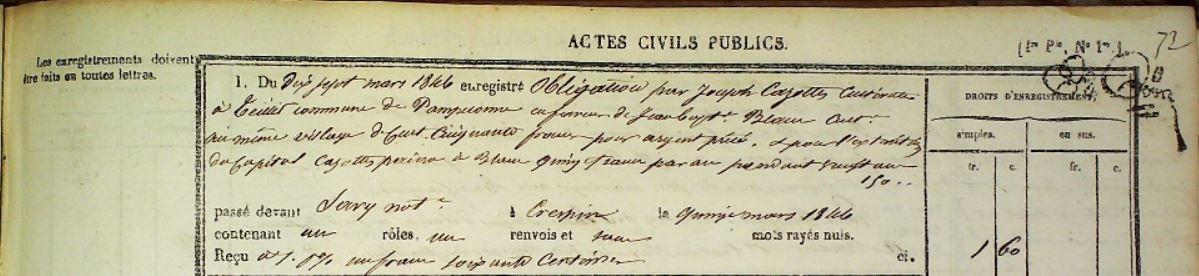 ACTES CIVILS PUBLICS.
[Ire Pie, No 1er]. 72
Les enregistrements doivent
être faits en toutes lettres.
1. Du Dix sept mars 1846 enregistré Obligation par Joseph Cazottes Cultivateur
à commune de Pampelonne en faveur de Jean Bapte Blanc Cultr
au même village de Cent Cinquante francs pour argent prêté, & pour l'extinction
du Capital Cazottes à Blanc quinze francs par an pendant an
150..
passé devant nore à Crespin le quinze mars 1846
contenant un rôles, un renvois et sans mots rayés nuls.
Reçu à 1. p% un franc soixante Centimes ci. 1 60
DROITS D'ENREGISTREMENT,
simples. en sus.
fr. c. fr. c.